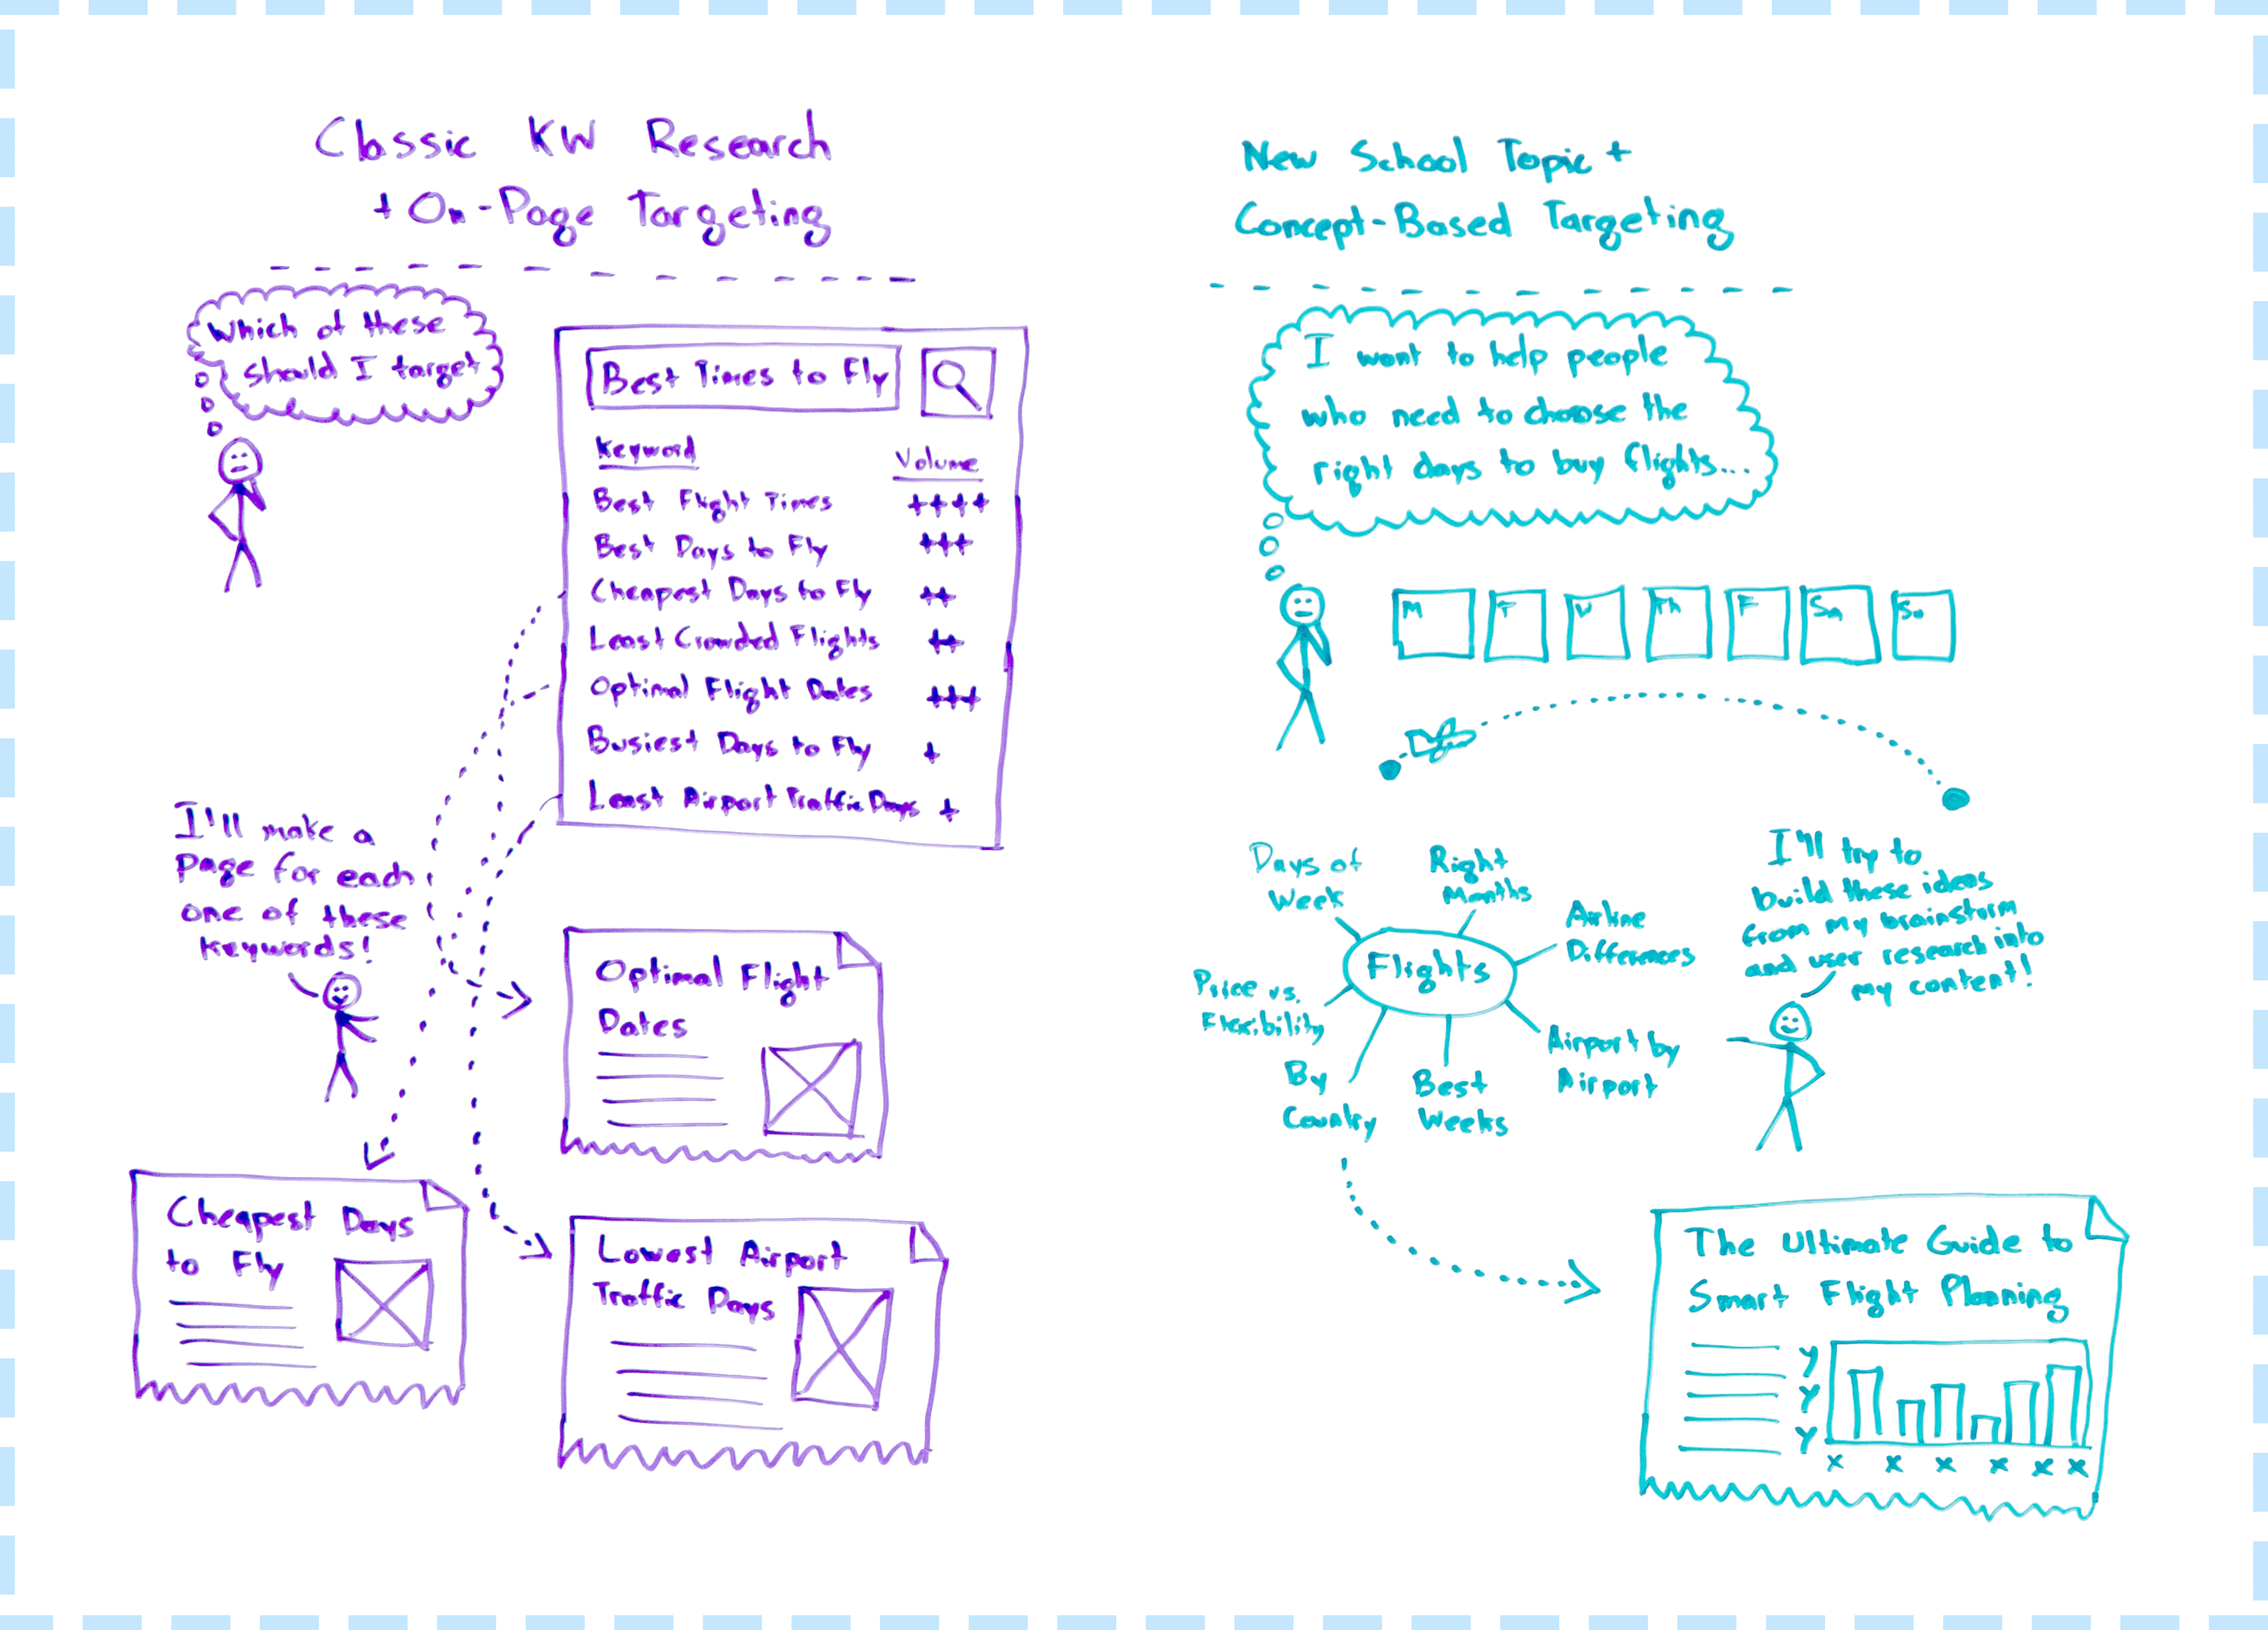 Classic KW Research
+ On-Page Targeting
Which of these
should I target
Best Times to Fly
Keyword Volume
Best Flight Times ++++
Best Days to Fly +++
Cheapest Days to Fly ++
Least Crowded Flights ++
Optimal Flight Dates +++
Busiest Days to Fly +
Least Airport Traffic Days +
I'll make a
page for each
one of these
keywords!
Optimal Flight
Dates
Cheapest Days
to Fly
Lowest Airport
Traffic Days
New School Topic +
Concept-Based Targeting
I want to help people
who need to choose the
right days to buy flights...
M T W Th F Sa Su
Days of
Week
Right
Months
Airline
Differences
Flights
Price vs.
Flexibility
By
Country
Best
Weeks
Airport by
Airport
I'll try to
build these ideas
from my brainstorm
and user research into
my content!
The Ultimate Guide to
Smart Flight Planning
y
y
y
x x x x x x